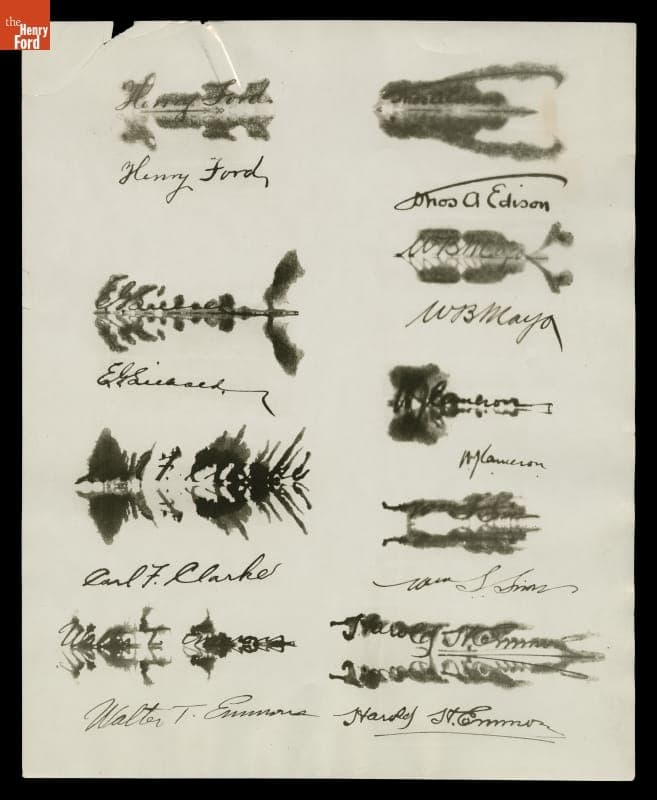 the
Henry
Ford
Henry Ford
Henry Ford
Thos A Edison
W B Mayo
W B Mayo
E G Liebold
E G Liebold
W J Cameron
W J Cameron
F.
Carl F. Clarke
Wm S.
Walter T. Emmons
Walter T. Emmons
Harold H. Emmons
Harold H. Emmons